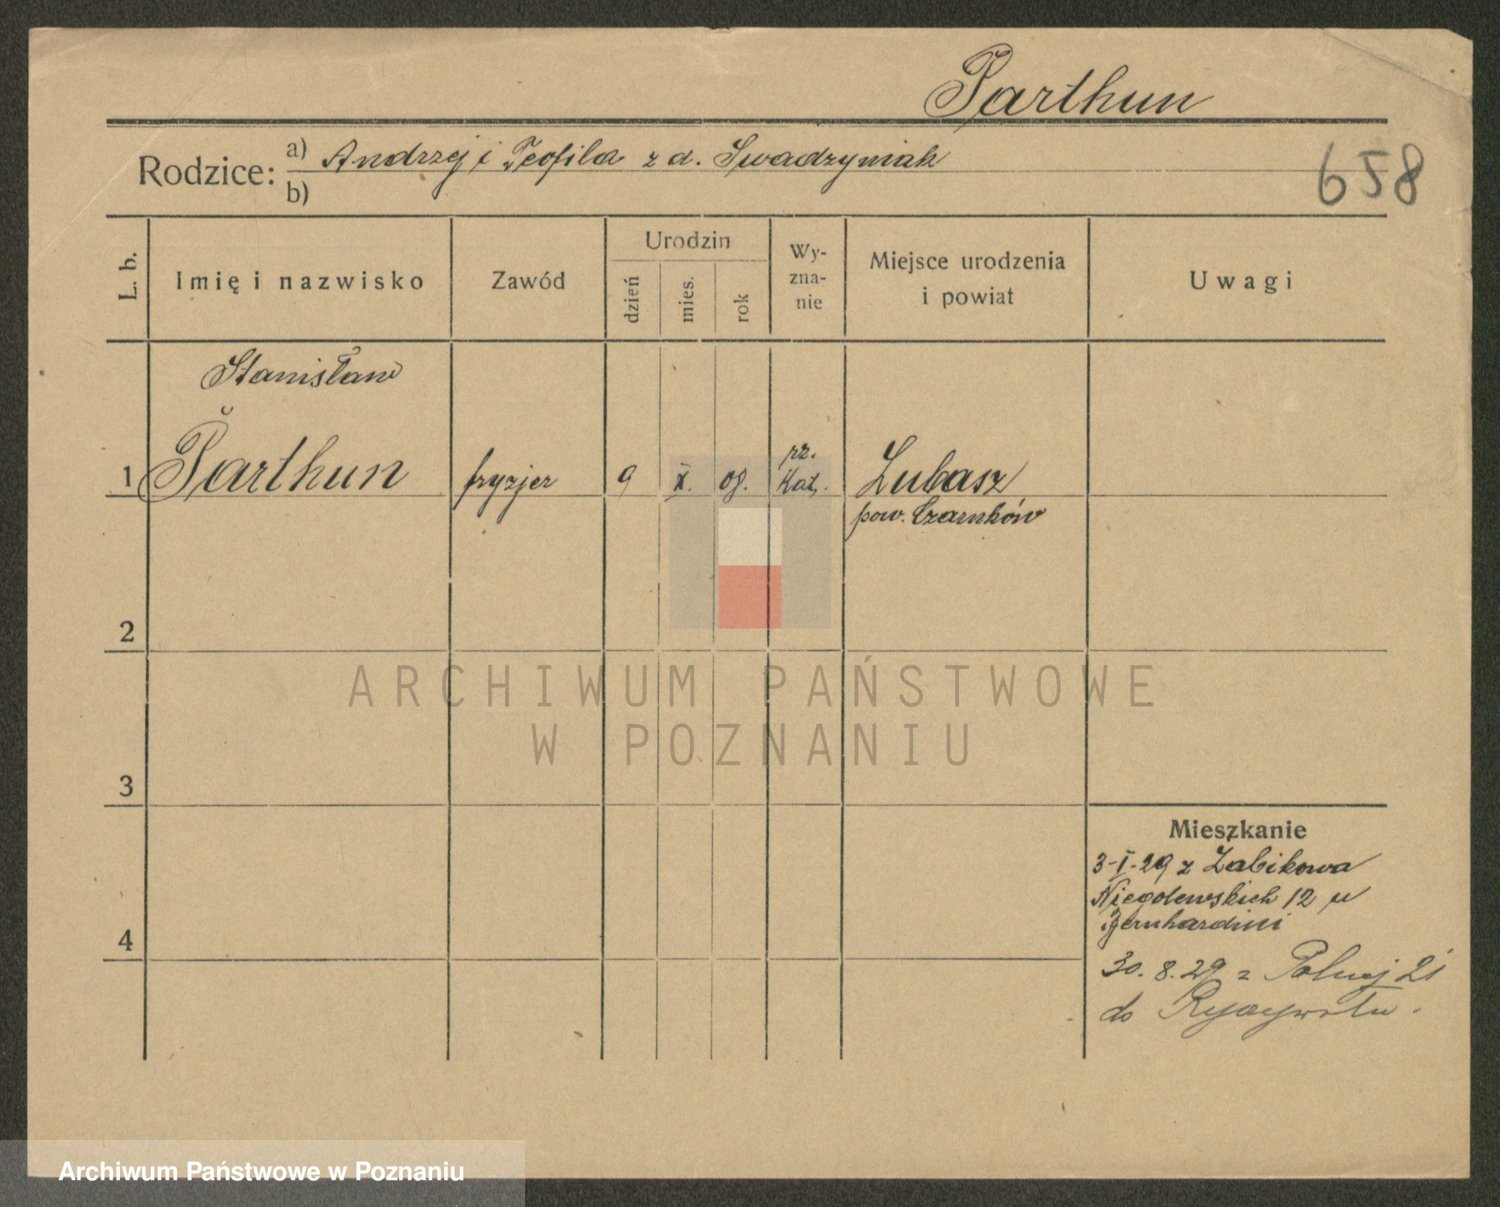 Parthun
Rodzice: a) Andrzej i Teofila z d. Swadzyniak
b)
658
L. b.
Imię i nazwisko
Zawód
Urodzin
dzień
mies.
rok
Wy-
zna-
nie
Miejsce urodzenia
i powiat
Uwagi
Stanisław
1 Parthun fryzjer 9 X. 08. rz. Kat. Lubasz
pow. Czarnków
2
3
4
Mieszkanie
3-I-29 z Żabikowa
Niegolewskich 12 u
Bernhardini
30. 8. 29 z Polnej 21
do
ARCHIWUM PAŃSTWOWE
W POZNANIU
Archiwum Państwowe w Poznaniu